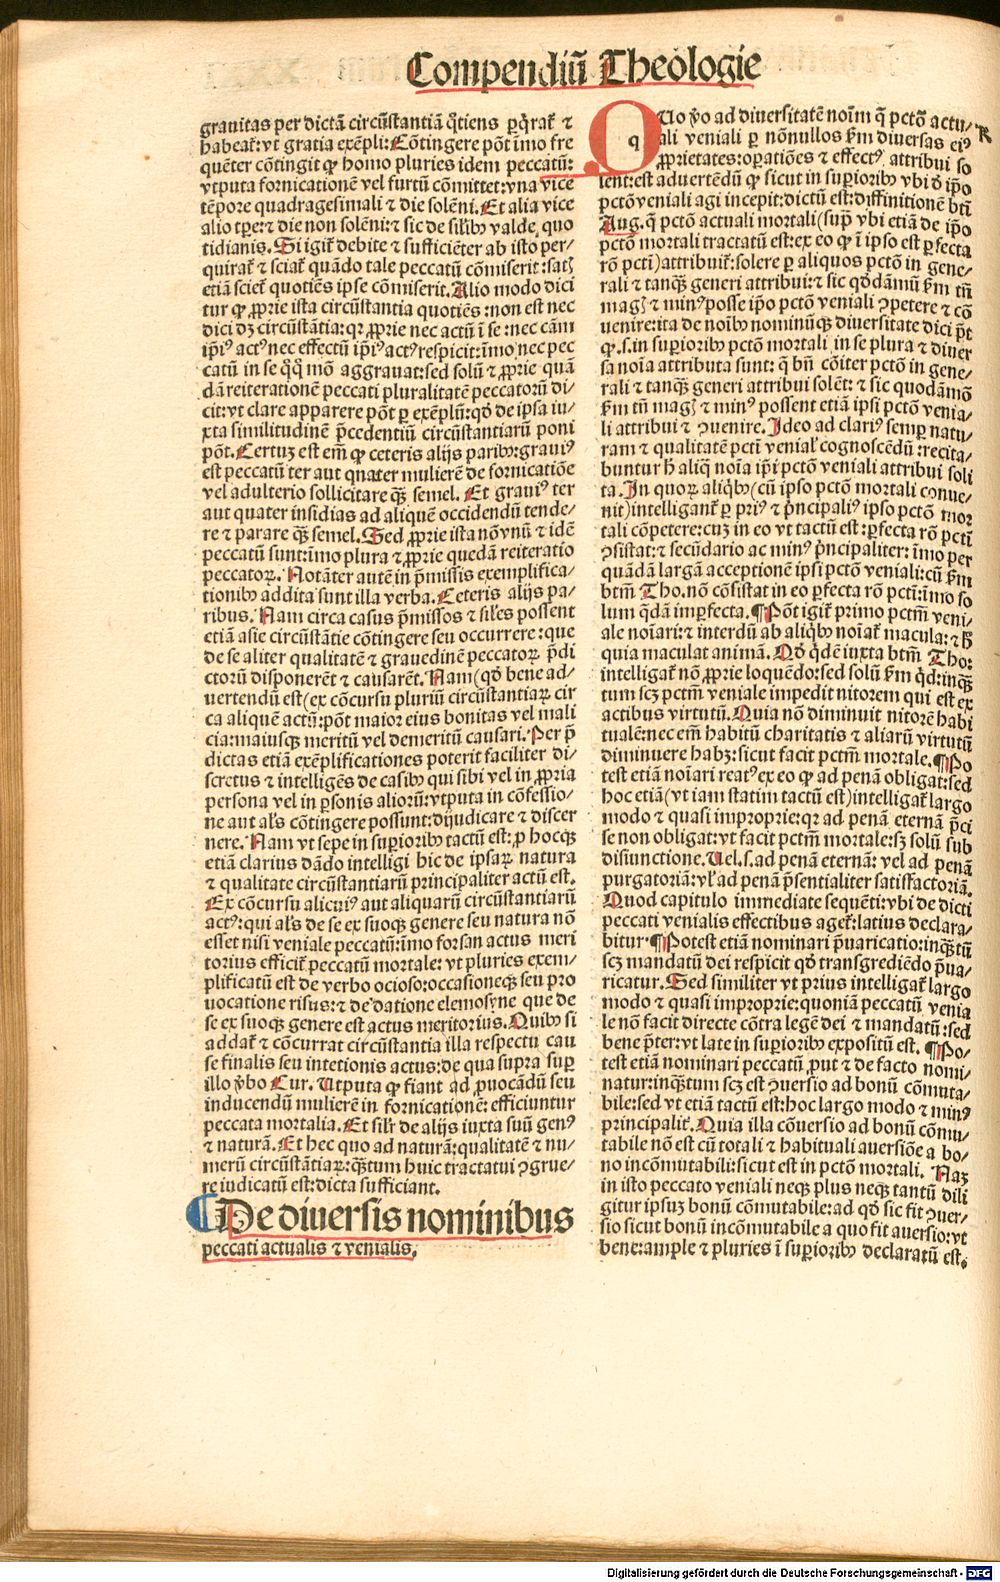 Compendiū Theologie
grauitas per dictā circūstantiā q̄tiens ꝑq̄rat̄ ⁊
habeat̄: vt gratia exēpli: Cōtingere pōt īmo fre
quēter cōtingit ꝙ homo pluries idem peccatū:
vtputa fornicationē vel furtū cōmittet: vna vice
tēpore quadragesimali ⁊ die solēni. Et alia vice
alio tp̄e: ⁊ die non solēni: ⁊ sic de silibꝫ valde quo
tidianis. Si igit̄ debite ⁊ sufficiēter ab isto per/
quirat̄ ⁊ sciat̄ quādo tale peccatū cōmiserit: satꝭ
etiā sciet̄ quotiēs ipse cōmiserit. Alio modo dici
tur ꝙ ꝓprie ista circūstantia quotiēs: non est nec
dici dꝫ circūstātia: qꝛ ꝓprie nec actū ī se: nec cām
ip̄iꝰ actꝰ nec effectū ip̄iꝰ actꝰ respicit: īmo nec pec
catū in se q̄q̄ mō aggrauat: sed solū ⁊ ꝓprie quā
dā reiterationē peccati pluralitatē peccatorū di/
cit: vt clare apparere pōt ꝑ exēplū: qđ de ipsa iu/
xta similitudinē p̄cedentiū circūstantiarū poni
pōt. Certuꝫ est em̄ ꝙ ceteris alijs paribꝫ: grauiꝰ
est peccatū ter aut quater mulierē de fornicatiōe
vel adulterio sollicitare q̄ꝫ semel. Et grauiꝰ ter
aut quater insidias ad aliquē occidendū tende/
re ⁊ parare q̄ꝫ semel. Sed ꝓprie ista nō vnū ⁊ idē
peccatū sunt: īmo plura ⁊ ꝓprie quedā reiteratio
peccatoꝝ. Notāter autē in p̄missis exemplifica/
tionibꝫ addita sunt illa verba. Ceteris alijs pa/
ribus. Nam circa casus p̄missos ⁊ sil̄es possent
etiā alie circūstātie cōtingere seu occurrere: que
de se aliter qualitatē ⁊ grauedinē peccatoꝝ p̄di
ctorū disponerēt ⁊ causarēt. Nam (qđ bene ad/
uertendū est) ex cōcursu pluriū circūstantiaꝝ cir
ca aliquē actū: pōt maior eius bonitas vel mali
cia: maiusqꝫ meritū vel demeritū causari. Per p̄
dictas etiā exēplificationes poterit faciliter di/
scretus ⁊ intelligēs de casibꝫ qui sibi vel in ꝓpria
persona vel in ꝑsonis aliorū: vtputa in cōfessio/
ne aut al̄s cōtingere possunt: dijudicare ⁊ discer
nere. Nam vt sepe in suꝑioribꝫ tactū est: ꝓ hocqꝫ
etiā clarius dādo intelligi hic de ipsaꝝ natura
⁊ qualitate circūstantiarū principaliter actū est.
Ex cōcursu alicuiꝰ aut aliquarū circūstantiarū
actꝰ: qui al̄s de se ex suoqꝫ genere seu natura nō
esset nisi veniale peccatū: īmo forsan actus meri
torius efficit̄ peccatū mortale: vt pluries exem/
plificatū est de verbo ocioso: occasioneqꝫ seu pro
uocatione risus: ⁊ de datione elemosyne que de
se ex suoqꝫ genere est actus meritorius. Quibꝫ si
addat̄ ⁊ cōcurrat circūstantia illa respectu cau
se finalis seu intetionis actus: de qua supra suꝑ
illo v̄bo Cur. Utputa ꝙ fiant ad ꝓuocādū seu
inducendū mulierē in fornicationē: efficiuntur
peccata mortalia. Et silr̄ de alijs iuxta suū genꝰ
⁊ naturā. Et hec quo ad naturā: qualitatē ⁊ nu/
merū circūstātiaꝝ: q̄ꝫtum huic tractatui ꝯgrue/
re iudicatū est: dicta sufficiant.
De diuersis nominibus
peccati actualis ⁊ venialis.
QUo v̄o ad diuersitatē noīm q̄ pctō actu/
ali veniali ꝑ nōnullos ẜm diuersas eiꝰ
ꝓprietates: oꝑatiōes ⁊ effectꝰ attribui so
lent: est aduertēdū ꝙ sicut in suꝑioribꝫ vbi đ ip̄o
pctō veniali agi incepit: dictū est: diffinitionē btī
Aug. q̄ pctō actuali mortali (suꝑ vbi etiā de ip̄o
pctō mortali tractatū est: ex eo ꝙ ī ipso est ꝑfecta
rō pcti) attribuit̄: solere ꝑ aliquos pctō in gene/
rali ⁊ tanqꝫ generi attribui: ⁊ sic qđāmū ẜm tn̄
magꝭ ⁊ minꝰ posse ip̄o pctō veniali ꝯpetere ⁊ cō
uenire: ita de noībꝫ nominūqꝫ diuersitate dici p̄t
ꝙ .s. in suꝑioribꝫ pctō mortali in se plura ⁊ diuer
sa noīa attributa sunt: q̄ bn̄ cōiter pctō in gene/
rali ⁊ tanqꝫ generi attribui solēt: ⁊ sic quodāmō
ẜm tn̄ magꝭ ⁊ minꝰ possent etiā ipsi pctō venia/
li attribui ⁊ ꝯuenire. Ideo ad clariꝰ semꝑ natu/
ram ⁊ qualitatē pcti venial̄ cognoscēdū: recita/
buntur h̄ aliq̄ noīa ip̄i pctō veniali attribui soli
ta. In quoꝝ aliq̄bꝫ (cū ipso pctō mortali conue/
nit) intelligant̄ ꝑ priꝰ ⁊ p̄ncipaliꝰ ipso pctō mor
tali cōpetere: cuꝫ in eo vt tactū est: ꝑfecta rō pcti
ꝯsistat: ⁊ secūdario ac minꝰ p̄ncipaliter: īmo per
quādā largā acceptionē ipsi pctō veniali: cū ẜm
btm̄ Tho. nō cōsistat in eo ꝑfecta rō pcti: īmo so
lum q̄dā imꝑfecta. ¶ Pōt igit̄ primo pctm̄ veni/
ale noīari: ⁊ interdū ab aliq̄bꝫ noīat̄ macula: ⁊ h̄
quia maculat animā. Qđ q̄dē iuxta btm̄ Tho.
intelligat̄ nō ꝓprie loquēdo: sed solū ẜm q̄d: inqꝫ
tum scꝫ pctm̄ veniale impedit nitorem qui est ex
actibus virtutū. Quia nō diminuit nitorē habi
tualē: nec em̄ habitū charitatis ⁊ aliarū virtutū
diminuere habꝫ: sicut facit pctm̄ mortale. ¶ Po
test etiā noīari reatꝰ ex eo ꝙ ad penā obligat: sed
hoc etiā (vt iam statim tactū est) intelligat̄ largo
modo ⁊ quasi improprie: qꝛ ad penā eternā p̄ci
se non obligat: vt facit pctm̄ mortale: sꝫ solū sub
disiunctione. Uel .s. ad penā eternā: vel ad penā
purgatoriā: vl̄ ad penā p̄sentialiter satisfactoriā.
Quod capitulo immediate sequēti: vbi de dicti
peccati venialis effectibus aget̄: latius declara/
bitur. ¶ Potest etiā nominari p̄uaricatio: inqꝫtū
scꝫ mandatū dei respicit qđ transgrediēdo p̄ua/
ricatur. Sed similiter vt prius intelligat̄ largo
modo ⁊ quasi improprie: quoniā peccatū venia
le nō facit directe cōtra legē dei ⁊ mandatū: sed
bene p̄ter: vt late in suꝑioribꝫ expositū est. ¶ Po/
test etiā nominari peccatū ꝓut ⁊ de facto nomi/
natur: inqꝫtum scꝫ est ꝯuersio ad bonū cōmuta/
bile: sed vt etiā tactū est: hoc largo modo ⁊ minꝰ
principalit̄. Quia illa cōuersio ad bonū cōmu/
tabile nō est cū totali ⁊ habituali auersiōe a bo/
no incōmutabili: sicut est in pctō mortali. Naꝫ
in isto peccato veniali neqꝫ plus neqꝫ tantū dili
gitur ipsuꝫ bonū cōmutabile: ad qđ sic fit ꝯuer/
sio sicut bonū incōmutabile a quo fit auersio: vt
bene: ample ⁊ pluries ī suꝑioribꝫ declaratū est.
Digitalisierung gefördert durch die Deutsche Forschungsgemeinschaft - DFG